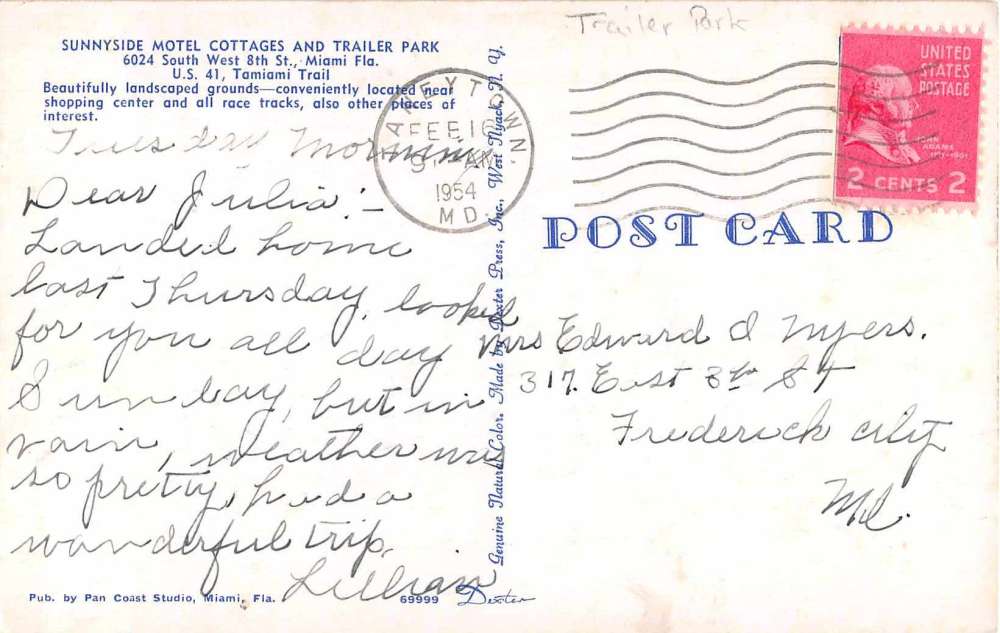 Trailer Park
SUNNYSIDE MOTEL COTTAGES AND TRAILER PARK
6024 South West 8th St., Miami Fla.
U.S. 41, Tamiami Trail
Beautifully landscaped grounds—conveniently located near
shopping center and all race tracks, also other places of
interest.
Tuesday Morning
Dear Julia:—
Landed home
last Thursday, looked
for you all day
Sunday, but in
vain, weather was
so pretty, had a
wonderful trip,
Lillian
Pub. by Pan Coast Studio, Miami, Fla.
69999
Dexter
Genuine Natural Color. Made by Dexter Press, Inc., West Nyack, N. Y.
TANEYTOWN.
FEB 16
AM
1954
MD.
UNITED
STATES
POSTAGE
JOHN
ADAMS
1797-1801
2 CENTS 2
POST CARD
Mrs Edward D Myers.
317. East 3rd St
Frederick City
Md.